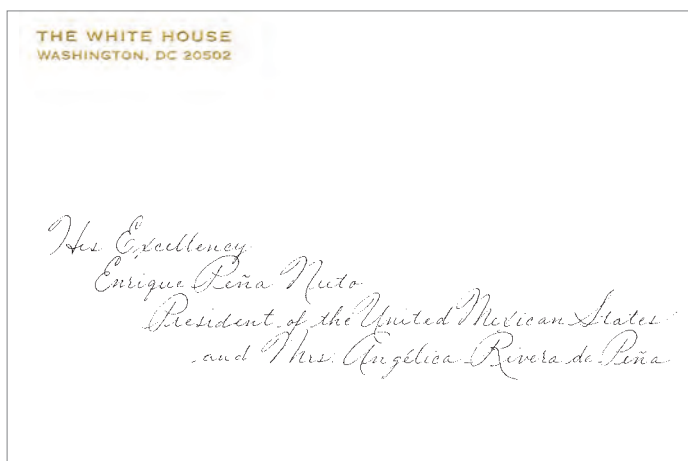 THE WHITE HOUSE
WASHINGTON, DC 20502
His Excellency
Enrique Peña Nieto
President of the United Mexican States
and Mrs. Angélica Rivera de Peña